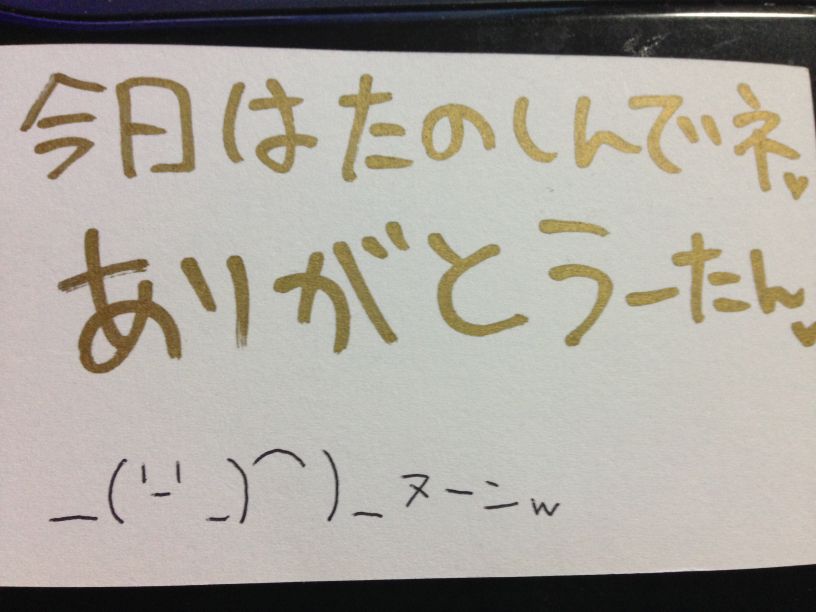 今日はたのしんでネ♥
ありがとうーたん♥
_(╵-╵ _)⌒ )_ ヌーンw